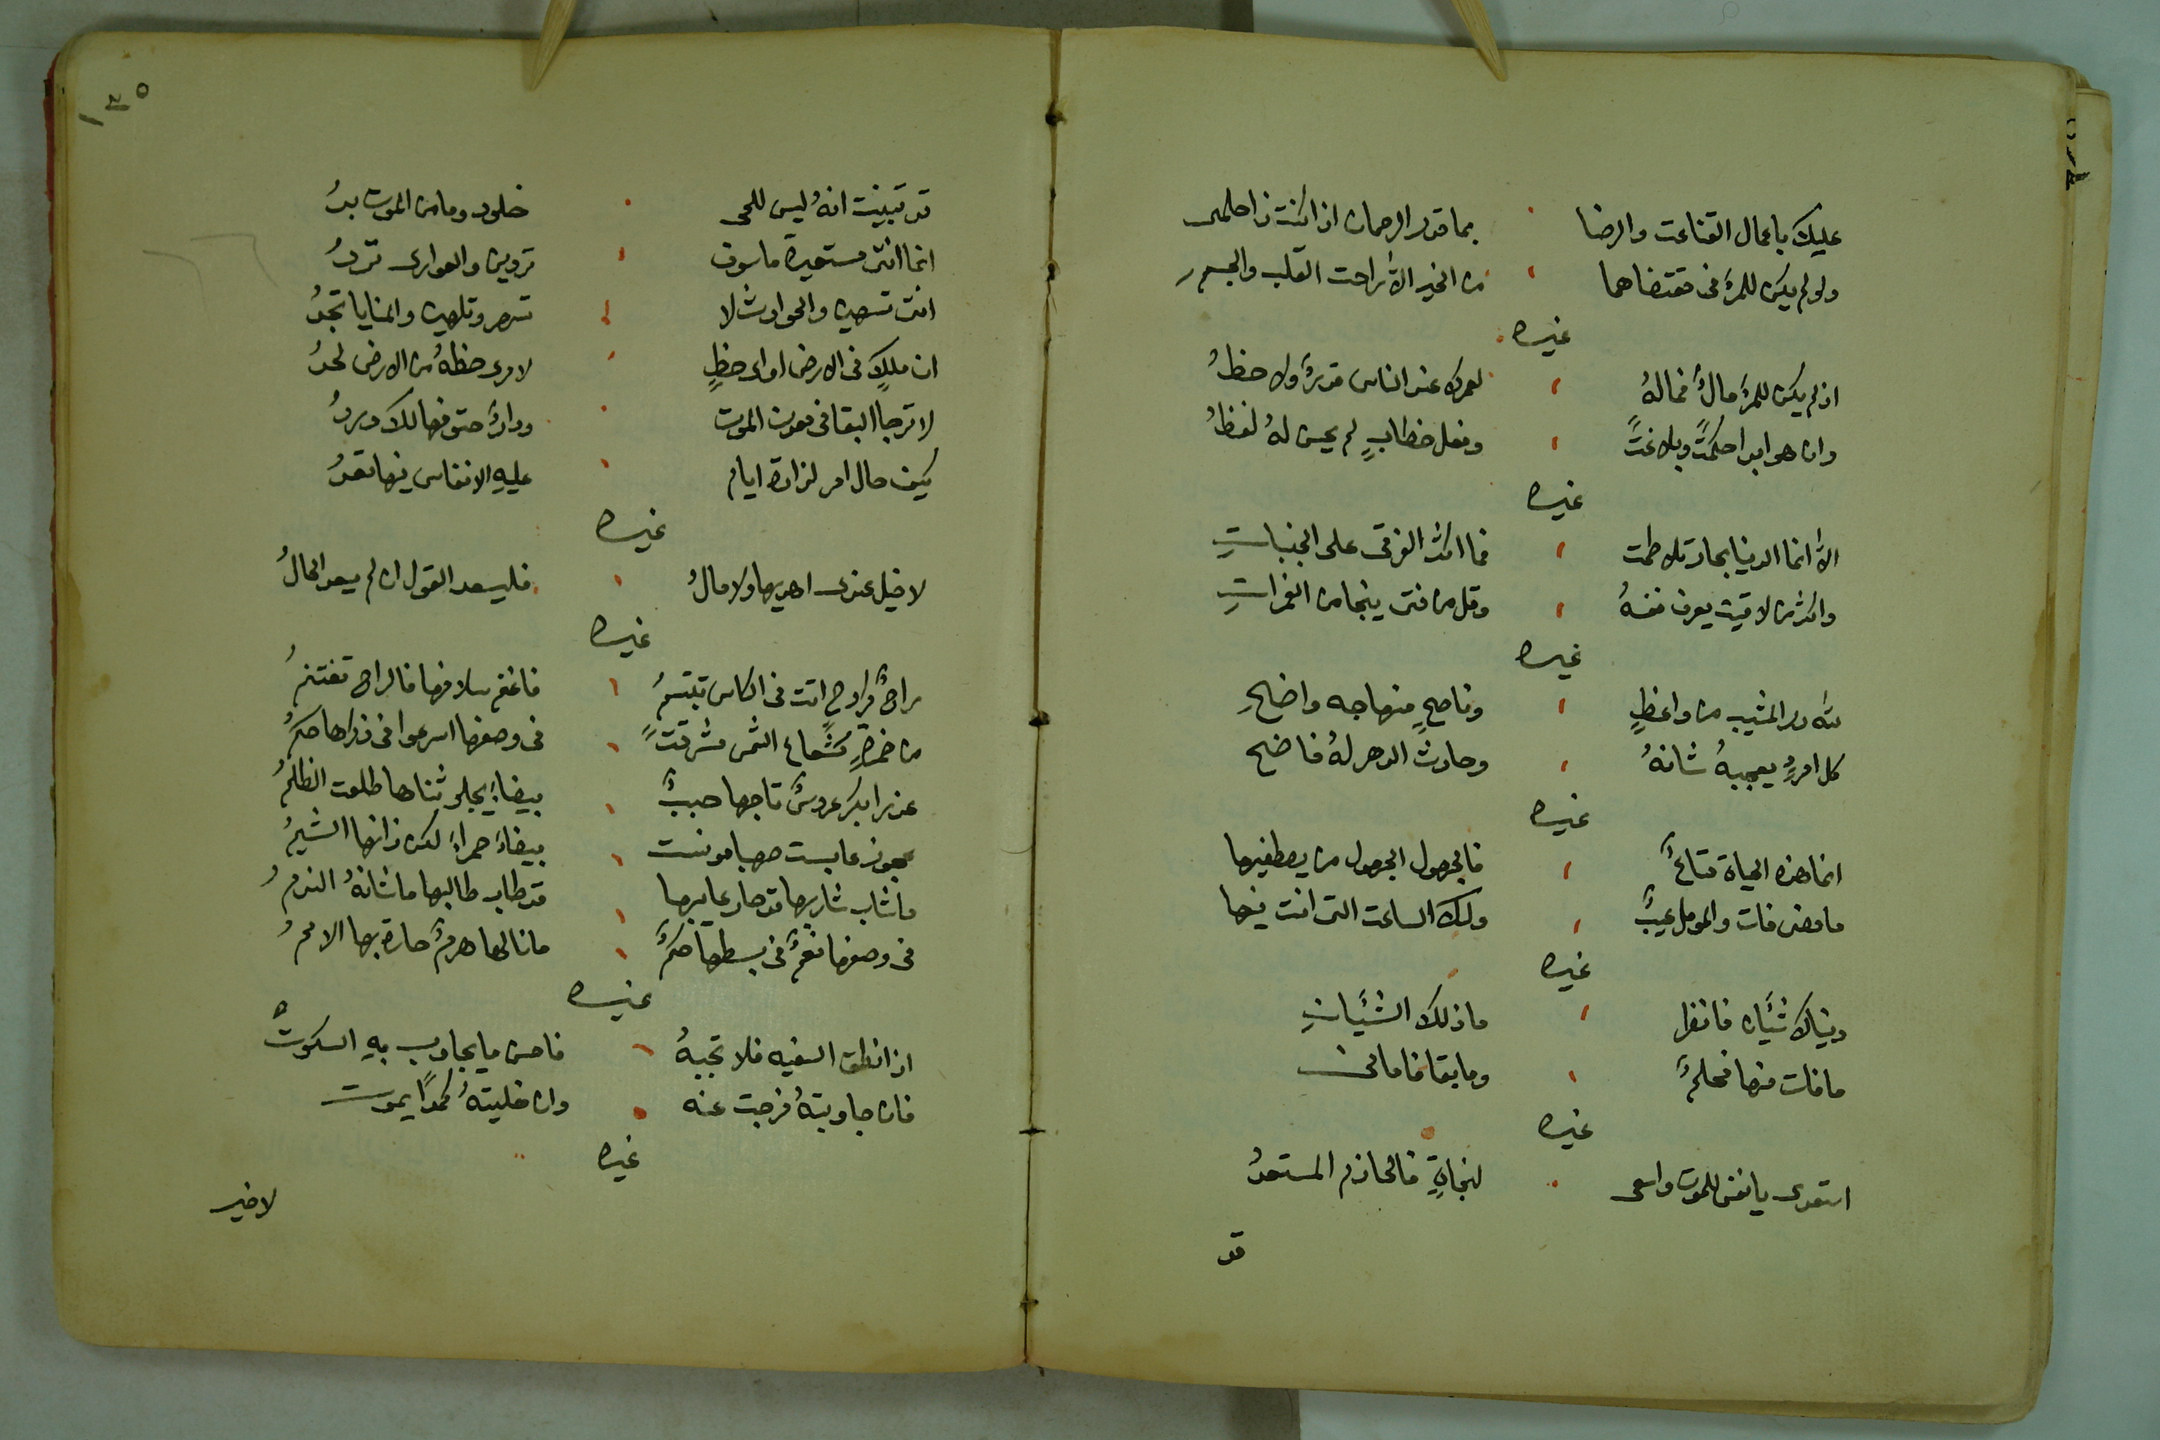 عليك باعمال القناعت والرضا بما قدر الرحمان اذا كنت ذا حلمى
ولو لم يكن للمرء فى مقتضاهما من الخير الا راحت القلب والجسم
غيره
اذ لم يكن للمرء مالٌ فماله لعمرك عند الناس قدرٌ ولا حظُ
وان هو ابدا حكمتًا وبلاغتًا وفعل خطابٍ لم يحسن لهُ لفظُ
غيره
الا انما الدنيا بحار تلاطمت فما اكثر الغرقى على الجنباتِ
واكثر من لاقيت يعرف نفسهُ وقل من فتى ينجا من الغمراتِ
غيره
لله در المشيب من واعظٍ وناصحٍ منهاجه واضحِ
كل امرءٍ يعجبهُ شانهُ وحادث الدهر لهُ فاضح
غيره
انما هذه الحياة متاعٌ فالجهول الجهول من يصطفيها
ما مضى فات والمومل غيبٌ ولك الساعت التى انت فيها
غيره
دنياك شيَان فانظر ما ذلك الشيَانِ
ما فات منها فحلمٌ وما بقا فامانى
غيره
استعدى يا نفس للموت واسعى لنجاةٍ فالحازم المستعدُ
قد
١٣٥
قد تبينت انهُ ليس للحى خلود وما من الموت بدُ
انما انت مستعيرة ما سوف تردين والعوارى تردُ
انت تسهين والحوادث لا تسهو وتلهين والمنايا تجدُ
اى ملكٍ فى الارض او اى حظٍ لامرى حظهُ من الارض لحدُ
لا ترجا البقا فى معدن الموت ودارٌ حتوفها لك وردُ
كيف حال امر لذاذة ايام عليهِ الانفاس فيها تعدُ
غيره
لا خيل عندى اهديها ولا مالُ فليسعد القول ان لم يسعد الحالُ
غيره
راحٌ اتت فى الكاس تبتسمُ فاغنم سلافها فالراح تغتنمُ
من خمرةٍ كشعاع الشمس مشرقتً فى وصفها اسرعوا فى ذراها حكمُ
عذرا بكر عروسٌ تاجها حببٌ بيضاءٌ يجلو ثناها طلعت الظلمُ
عجوز عابست صهبا مونست بيضاءَ حمراءَ لكن زانها الشيمُ
ما شاب شاربها قد حار عايبها قد طاب طالبها ما شانهُ الندمُ
فى وصفها نغمٌ فى بسطها حكمٌ ما نالها هرمٌ حارة بها الاممُ
غيره
اذا نطق السفيه فلا تجبهُ فاحسن ما يجاوب بهِ السكوتُ
فان جاوبتهُ فرجت عنه وان خليتهُ كمدًا يموت
غيره
لا خير